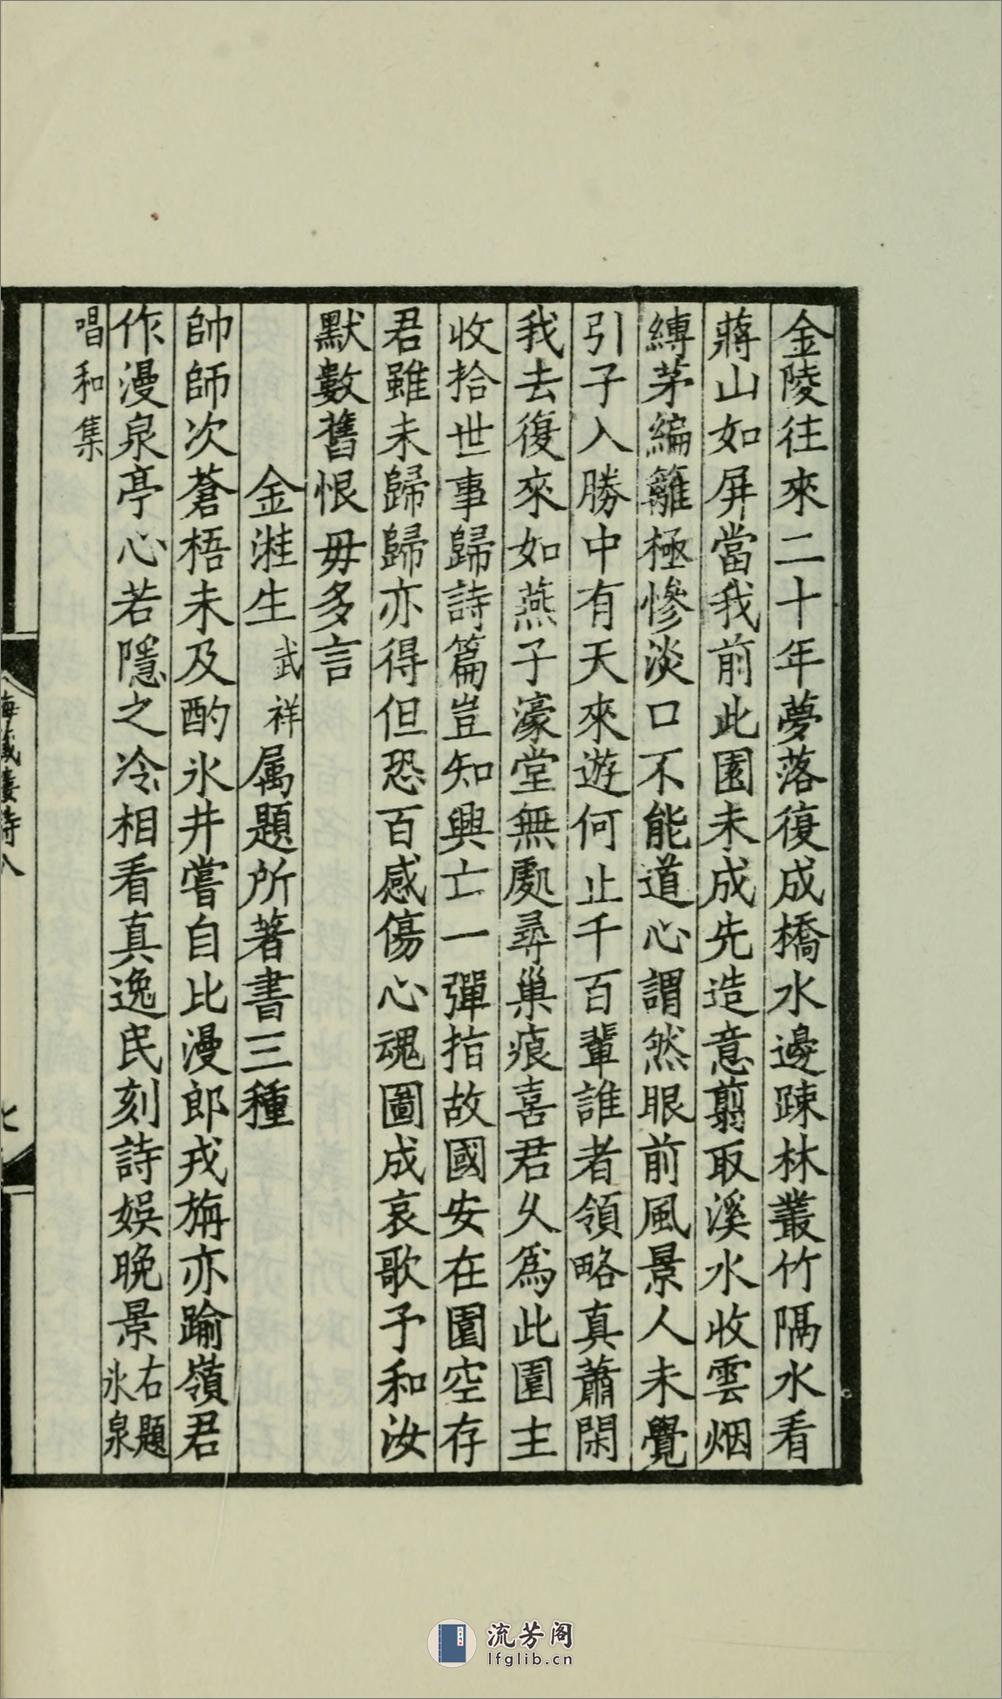 金陵往來二十年夢落復成橋水邊疎林叢竹隔水看
蔣山如屏當我前此園未成先造意翦取溪水收雲烟
縛茅編籬極慘淡口不能道心謂然眼前風景人未覺
引子入勝中有天來遊何止千百輩誰者領略真蕭閑
我去復來如燕子濠堂無處尋巢痕喜君久為此園主
收拾世事歸詩篇豈知興亡一彈指故國安在園空存
君雖未歸歸亦得但恐百感傷心魂圖成哀歌予和汝
默數舊恨毋多言
金溎生武祥属題所著書三種
帥師次蒼梧未及酌氷井嘗自比漫郎戎旃亦踰嶺君
作漫泉亭心若隱之冷相看真逸民刻詩娛晚景右題氷泉
唱和集
海藏樓詩八
七
流芳阁
lfglib.cn